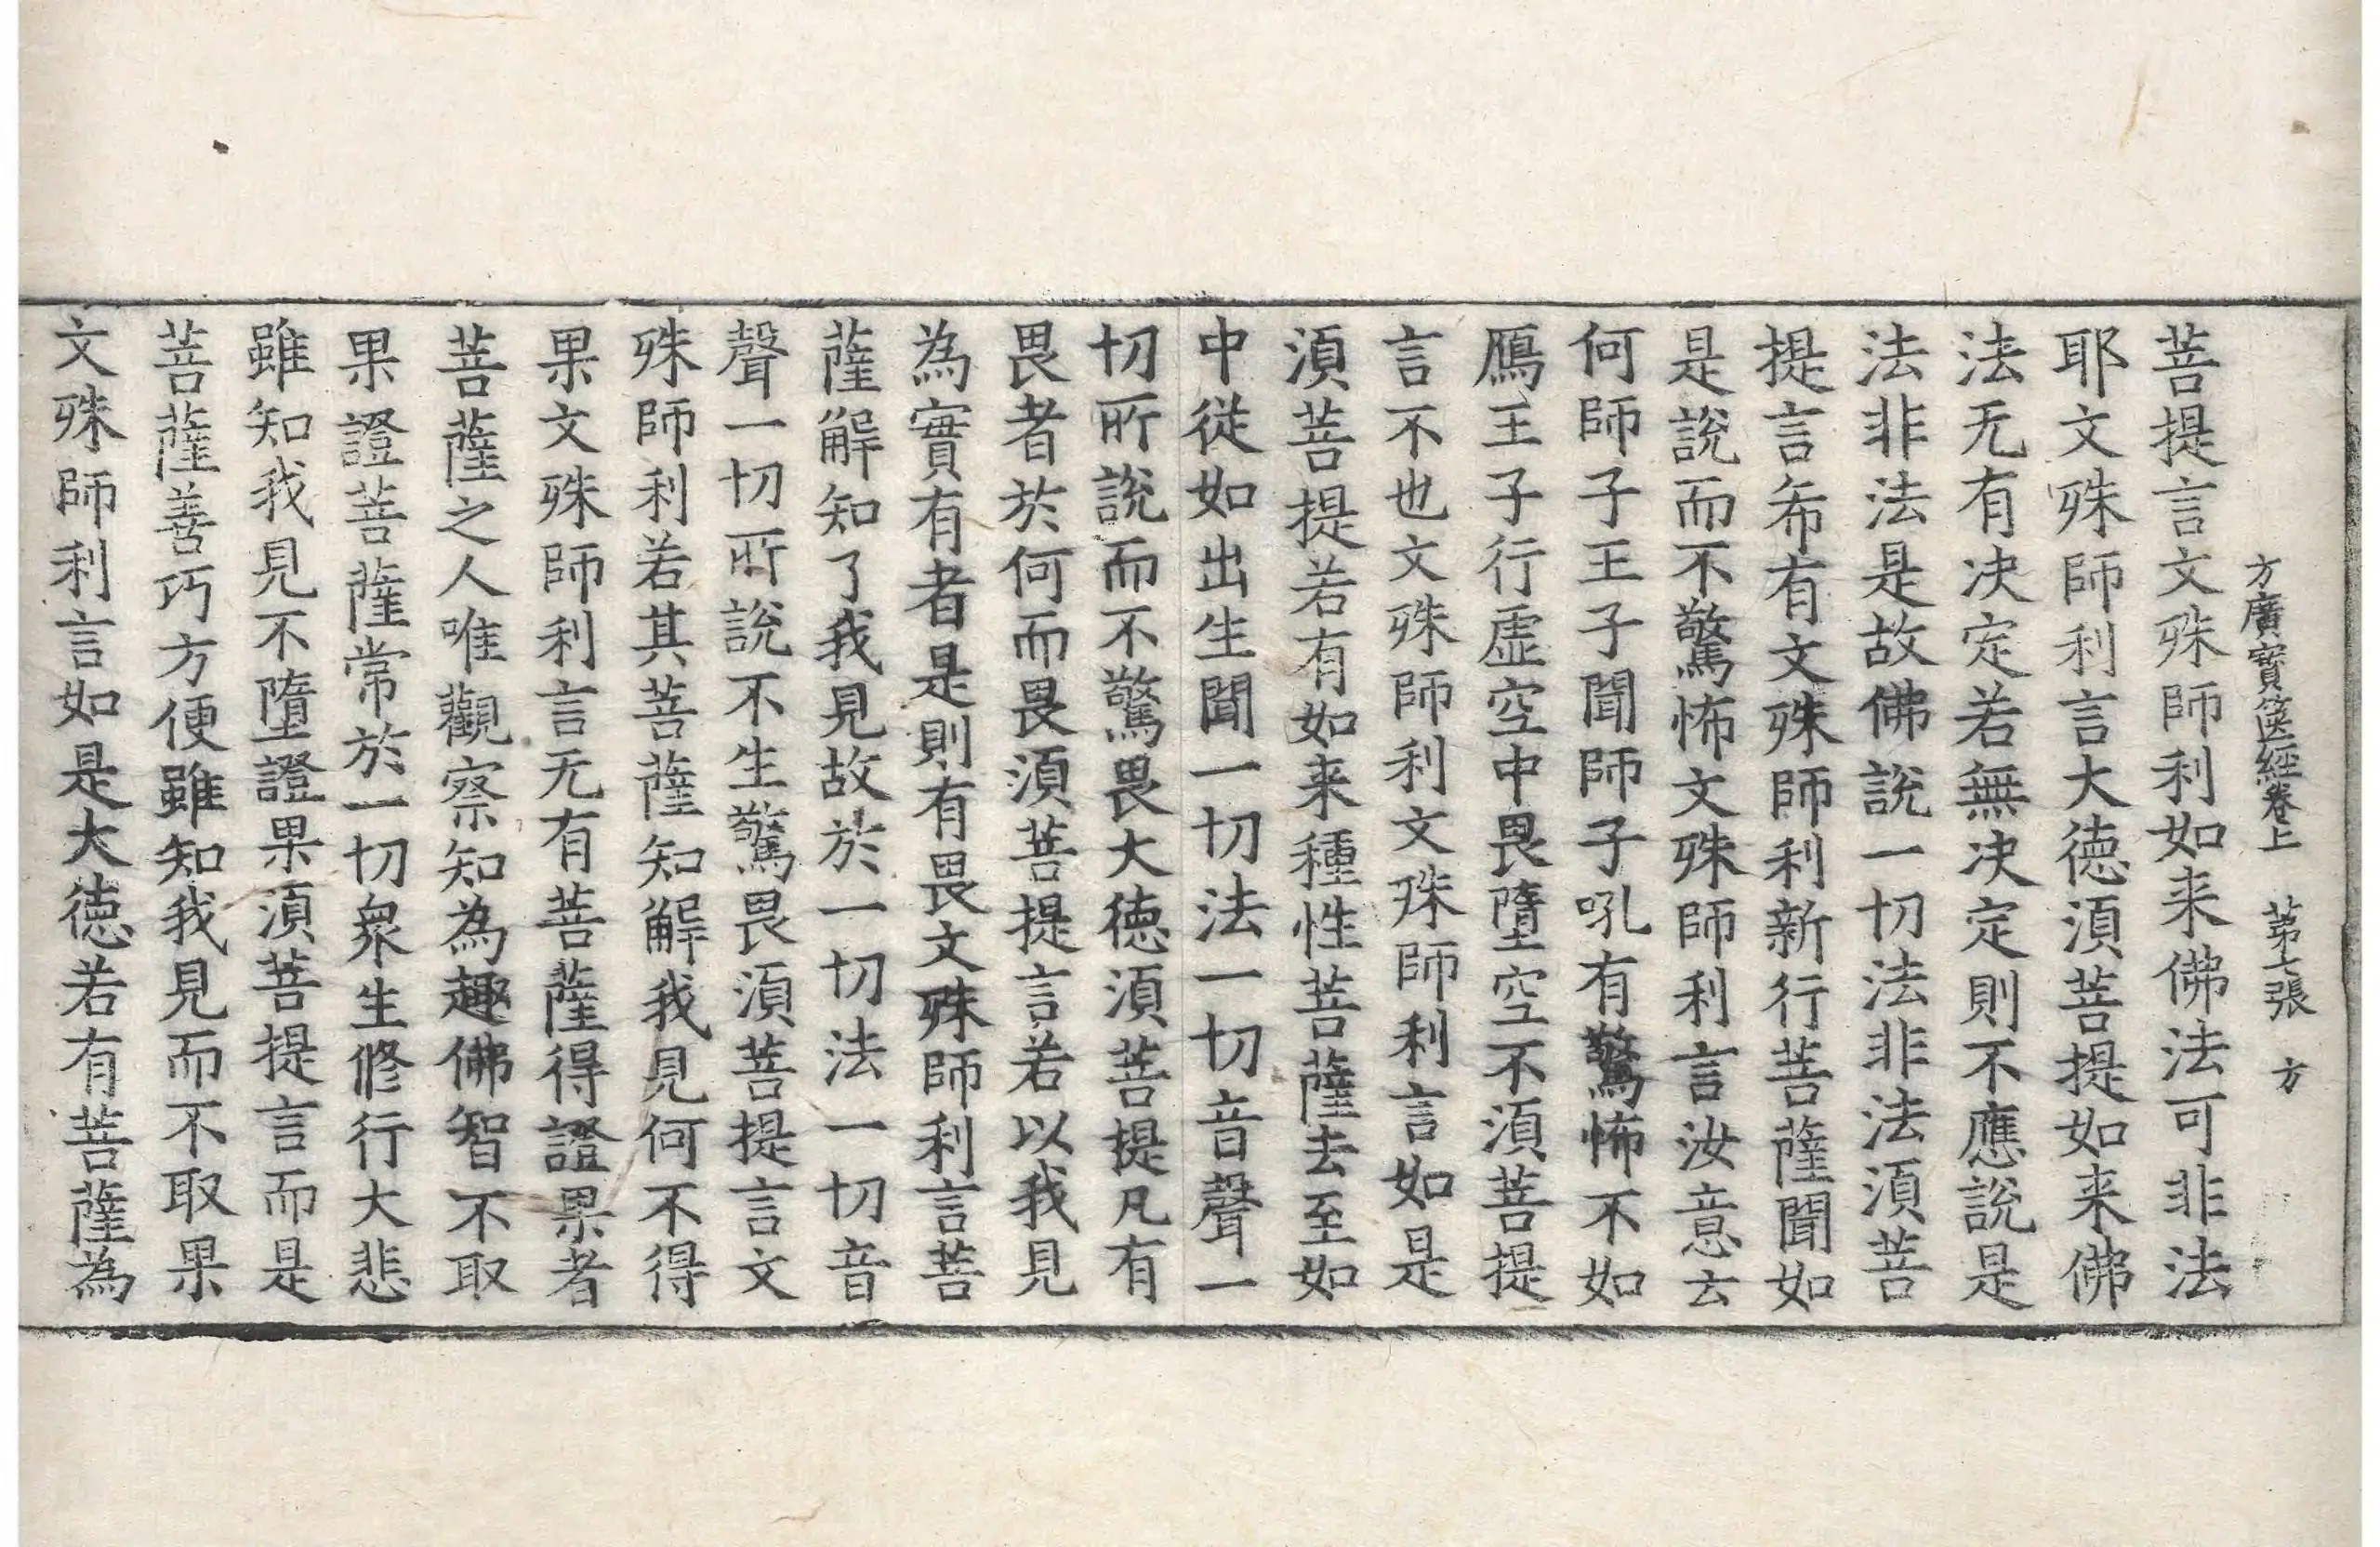 方廣寳篋經卷上 第七張 方
菩提言文殊師利如来佛法可非法
耶文殊師利言大德湏菩提如来佛
法无有决定若無决定則不應說是
法非法是故佛說一切法非法湏菩
提言希有文殊師利新行菩薩聞如
是說而不驚怖文殊師利言汝意云
何師子王子聞師子吼有驚怖不如
鴈王子行虛空中畏墮空不湏菩提
言不也文殊師利文殊師利言如是
湏菩提若有如来種性菩薩去至如
中從如出生聞一切法一切音聲一
切所說而不驚畏大德湏菩提凡有
畏者於何而畏湏菩提言若以我見
為實有者是則有畏文殊師利言菩
薩解知了我見故於一切法一切音
聲一切所說不生驚畏湏菩提言文
殊師利若其菩薩知解我見何不得
果文殊師利言无有菩薩得證果者
菩薩之人唯觀察知為趣佛智不取
果證菩薩常於一切衆生修行大悲
雖知我見不墮證果湏菩提言而是
菩薩善巧方便雖知我見而不取果
文殊師利言如是大德若有菩薩為